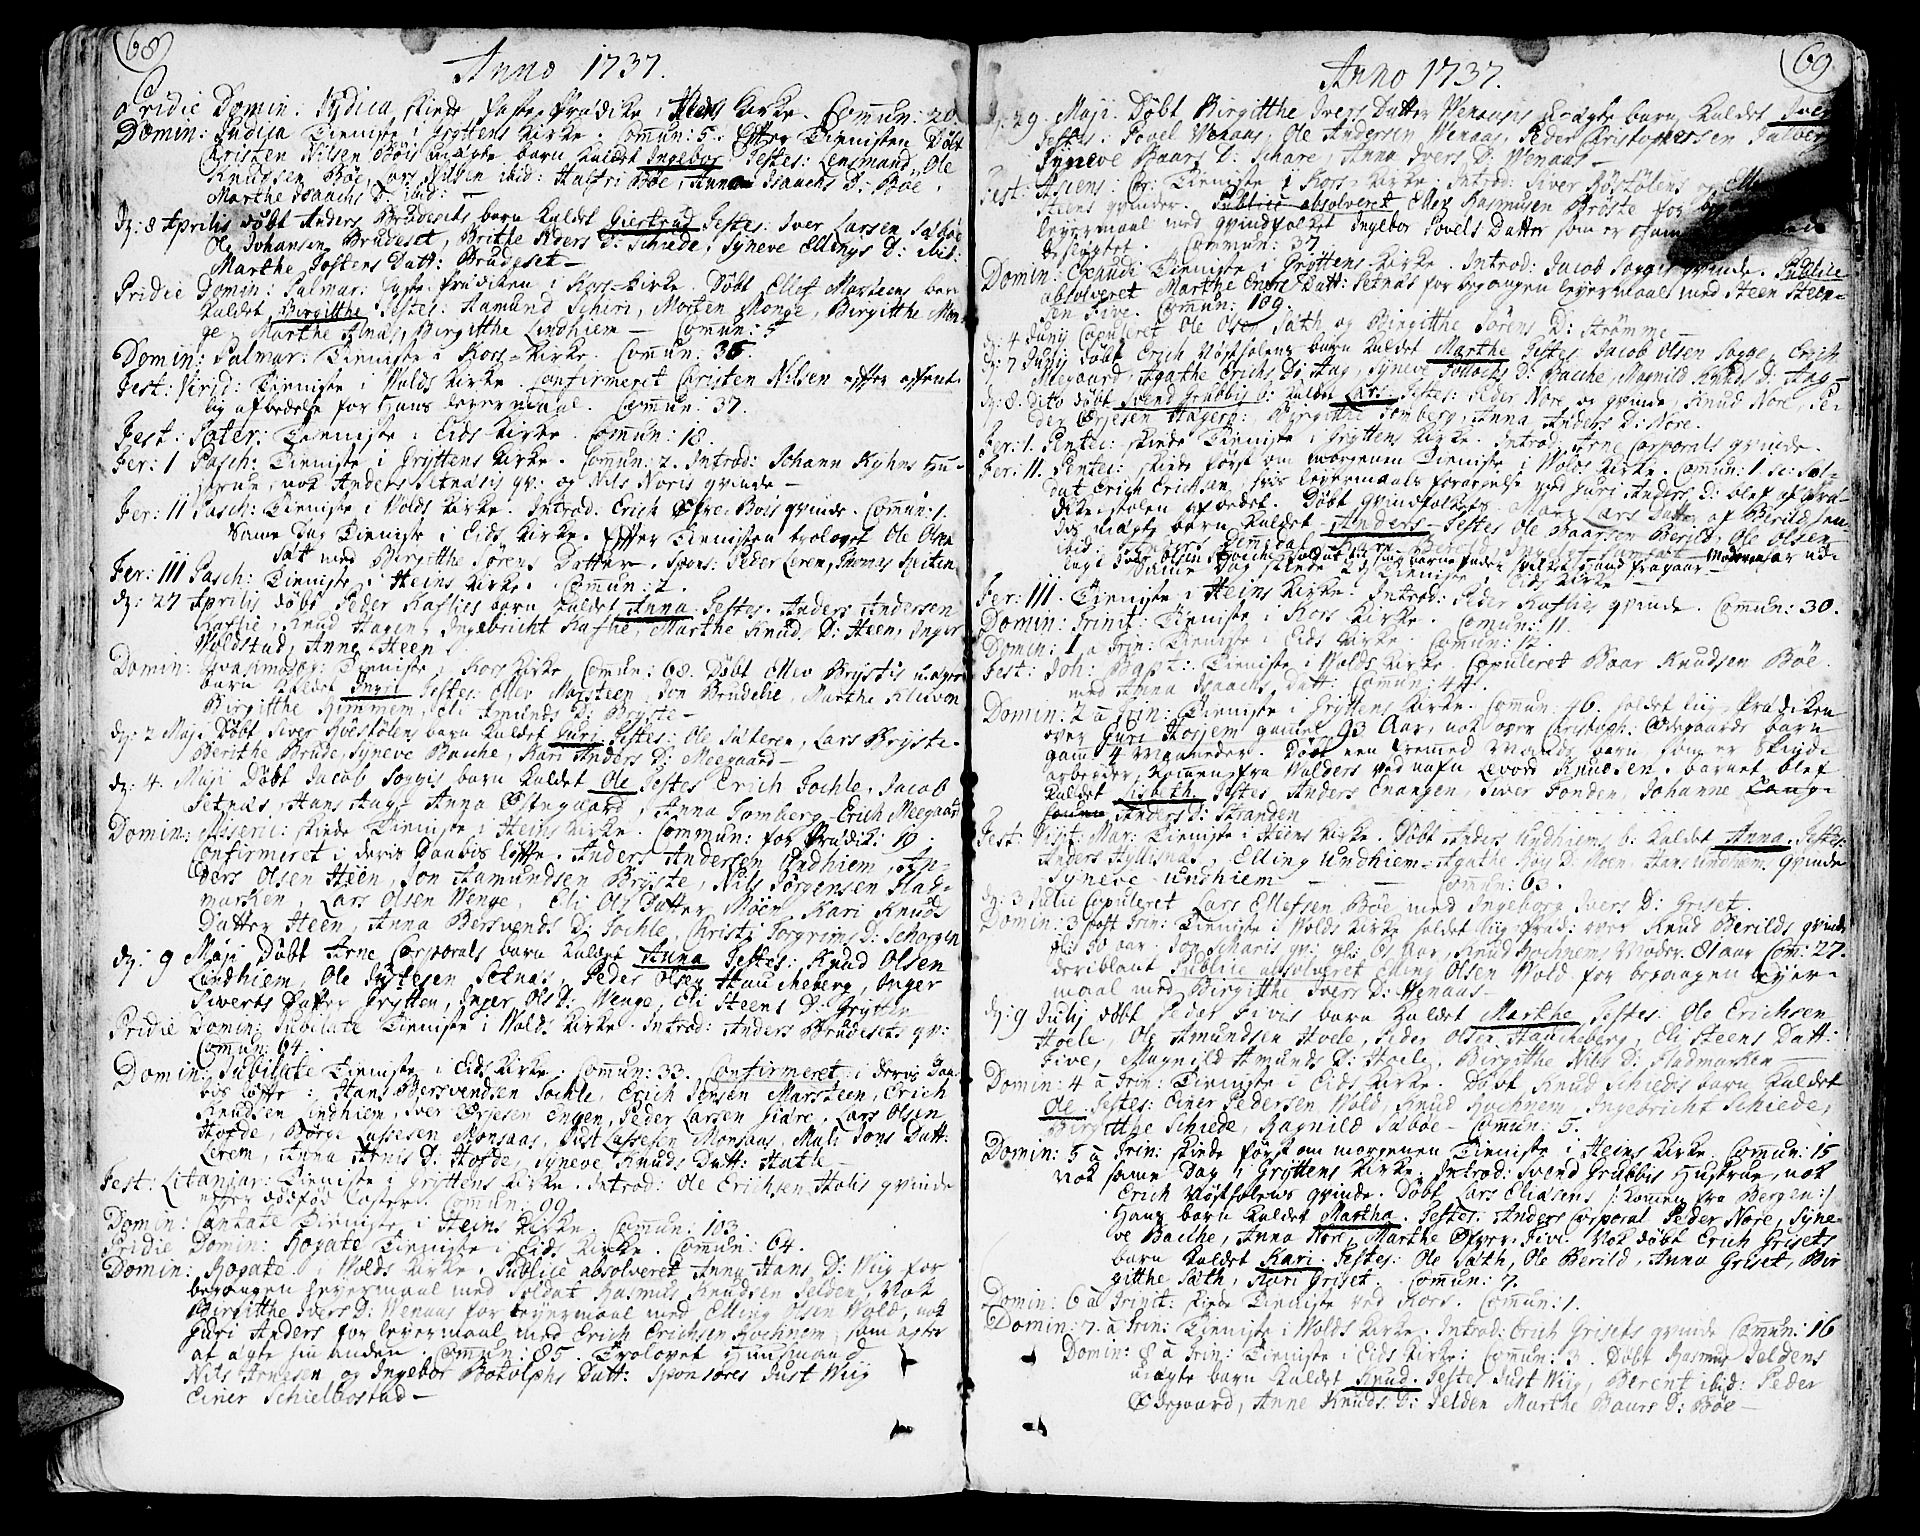 68
Anno 1737.
Pridie Domin: Judica, skede faste Prædike i Heens Kirke. Com̄un: 20.
Domin: Judica Tieniste i Gryttens Kirke. Com̄un: 5. Efter Tienisten Døbt
Christen Nilsen Böis uægte barn kaldet Ingebor Testes: Lensmand Ole
Knudsen Böe, Lars Nilsen ibid: Hustri Böe, Anna Isaachs D: Böe,
Marthe Isaachs D: ibid: —
D: 8 Aprilis døbt Anders Brudesets barn kaldet Giertrud Testes: Iver Larsen Sæbøe
Ole Johansen Brudeset, Brithe Iders D: Schiede, Syneve Ellings D: ibid:
Marthe Jostens Datt: Brudeset —
Pridie Domin: Palmar: Prædiken i Kors-Kirke. Døbt Ellef Marsteens barn
kaldet Birgitthe Testes: Aamund Schiri, Morten Monge, Birgitthe Mon-
ge, Marthe Almaas, Birgitthe Lindhiem — Com̄un: 5
Domin: Palmar: Tieniste i Kors-Kirke. Com̄un: 35.
Fest: Virid: Tieniste i Wolds Kirke. Confirmeret Christen Nilsen efter offent-
lig afbedelse for Hans leyermaal. Com̄un: 37.
Fest: Pater: Tieniste i Eids Kirke. Com̄un: 18.
Fer: 1 Pasch: Tieniste i Gryttens Kirke. Com̄un: 2. Introd: Johann Kyhns Hu-
strue, nok Anders Setnæsis qv: og Nils Noris qvinde —
Fer: 11 Pasch: Tieniste i Wolds Kirke. Introd: Erich Øfre-Bøis qvinde. Com̄un: 1.
Samme Dag Tieniste i Eids Kirke. Efter Tienisten trolovet Ole Olsen
Sæt med Birgitthe Sørens Datter. Spons: Peder Lerem, Thomas
Fer: 111 Pasch: Tieniste i Heens Kirke. Com̄un: 2.
D: 27 Aprilis døbt Peder Kaflies barn kaldet Anna Testes. Anders Andersen
Kaflie, Knud Hagen, Ingebricht Kaflie, Marthe Knuds D: Heen, Inger
Woldstad, Anne Heen
Domin: Quasimodog: Tieniste i Kors Kirke Com̄un: 68. Døbt Ellev Brystis uægte
barn kaldet Ingri Testes: Ellev Marsteen, Jon Brudelie, Marthe
Birgitthe Himmem, Eli Amunds D: Bryste —
D: 2 Maji Døbt Siver Höestølens barn kaldet Guri Testes: Ole Sæteren, Lars Bryste.
Berithe Brude, Syneve Bache, Kari Anders D: Meegaard —
D: 4. Maji Døbt Jacob Soggis barn kaldet Ole Testes Erich Sochle, Jacob
Setnæs, Hans Aag, Anna Østigaard, Anna Tomberg, Erich Meegaard
Domin: Miseric: skede Tieniste i Heens Kirke. Com̄un: for Prædik: 19
Confirmeret i deris Daabis løfte. Anders Andersen Lindhiem, An-
ders Olsen Heen, Jon Aamundsen Bryste, Nils Jørgensen Flad-
marken, Lars Olsen Wenge, Eli Ols Datter Moen, Kari Knuds
Datter Heen, Anna Bersvends D: Sochle, Christi Torgrims D: Schorgen
D: 9 Maji Døbt Arne Corporals barn kaldet Anna Testes: Knud Olsen
Lindhiem, Ole Justesen Setnæs, Peder Olsen Haucheberg, Inger
Siverts Datter Grytten, Inger Ols D: Wenge, Eli Steens D: Grytten
Pridie Domin: Jubilate Tieniste i Wolds Kirke. Introd: Anders Brudesets qv:
Com̄un: 64.
Domin: Jubilate Tieniste i Eids Kirke. Com̄un: 33. Confirmeret i deris Daa-
bis løfte: Hans Bersvendsen Sochle, Erich Jonsen Marsteen, Erich
Knudsen Lindhiem, Iver Ørjesen Engen, Peder Larsen Giære, Lars Olsen
Hofde, Børge Lassesen Monsaas, Just Lassesen Monsaas, Mali Jons Datt:
Lerem, Anna Arnis D: Hofde, Syneve Knuds Datt: Hatle —
Fest: Litaniar: Tieniste i Gryttens Kirke. Introd: Ole Erichsen Holis qvinde
efter dødfød foster. Com̄un: 99.
Domin: Cantate Tieniste i Heens Kirke. Com̄un: 103.
Pridie Domin: Rogate Tieniste i Eids Kirke. Com̄un: 64.
Domin: Rogate. i Wolds Kirke. Publice absolveret Anna Hans D: Wiig for
begangen Leyermaal med Soldat Rasmus Knudsen Jelden, Nok
Birgitthe Ivers D: Wenaas for Leyermaal med Elling Olsen Wold, nok
Guri Anders for leyermaal med Erich Erichsen Hochnem, som agter
at ægte hin anden. Com̄un: 85. Trolovet Huusmand
Nils Arnesen og Ingebor Botolphs Datt: Sponsores Just Wiig
Einer Schielbostad —
69
Anno 1737.
D: 29. Maji. Døbt Birgitthe Ivers Datter Wenaasis U-ægte barn kaldet Iver
Testes. Povel Wenaas, Ole Andersen Wenaas, Peder Christophersen
Syneve Baars D: Schare, Anna Ivers D: Wenaas —
Fest: Ascens. Chr: Tieniste i Kors-Kirke. Introd: Siver Höstølens og
stens qvinder. Publice absolveret Ellev Rasmusen Bryste for
leyermaal med qvindfolket Ingebor Povels Datter som er
besvogret. Com̄un: 37.
Domin: Exaudi Tieniste i Gryttens Kirke. Introd: Jacob Soggis qvinde. Publice
absolveret Marthe Endre Datt: Setnæs for begangen leyermaal med Steen Steen-
sen Five. Com̄un: 109.
D: 4 Junij Copuleret Ole Olsen Sæth og Birgitthe Sørens D: Strømme —
D: 7 Junij døbt Erich Nøstfolens barn kaldet Marthe Testes Jacob Olsen Sogge, Erich
Meegaard, Agathe Erichs D: Aag, Syneve D: Bache, Magnild Knuds D: Aag —
D: 8. Dito døbt Svend Grubbis b: kaldet Kari. Testes: Peder Nore og qvinde, Knud Nore, Pe-
der Ørjesen Hagen, Birgitthe Tomberg, Anna Anders D: Nore.
Fer: 1. Pentec: skede Tieniste i Gryttens Kirke. Introd: Arne Corporals qvinde.
Fer: 11. Pentec: skede først om morgenen Tieniste i Wolds Kirke. Com̄un: 1. Sc: Sol-
dat Erich Erichsen, hvis leyermaals forargelse med Guri Anders D: blef af Præ-
dikestolen afbedet. Døbt qvindfolkets Mari Lars Datter af Berild hen-
des uægte barn kaldet Anders — Testes Ole Baarsen Berild, Ole Olsen
ibid:
Samme Dag skede og Tieniste i Eids Kirke —
Fer: 111. Tieniste i Heens Kirke. Introd: Peder Kaflies qvinde. Com̄un: 30.
Domin: Trinit: Tieniste i Kors Kirke. Com̄un: 11.
Domin: 1 a Trin: Tieniste i Eids Kirke. Com̄un: 12.
Fest: Joh: Bapt: Tieniste i Wolds Kirke. Copuleret Baar Knudsen Böe.
med Anna Isaachs Datt: Com̄un: 44.
Domin: 2 a Trin: Tieniste i Gryttens Kirke. Com̄un: 46. holdet Liig-Prædiken
over Guri Horjem gammel 93 Aar, nok over Christoph: Ødegaards barn
gam̄: 4 Maaneder. Døbt een fremmed Mands barn som er Skind-
arbeider, kommen fra Walders ved nafn Levord Knudsen. barnet blef
kaldet Lisbeth Testes, Anders Enangen, Siver Sonden, Johanne Lang-
Anders D: Stranden
Fest: Visit: Mar: Tieniste i Heens Kirke. Døbt Anders Lindhiems b: kaldet Anna. Testes:
Anders Hyllisnæs, Elling Undhiem, Agathe D: Moen, Hans Undhiems qvinde
Syneve Undhiem — Com̄un: 63.
D: 3 Julii Copuleret Lars Ellefsen Böe med Ingeborg Ivers D: Griset.
Domin: 3 post Trin: Tieniste i Wolds Kirke holdet Liig-Præd: over Knud Berilds qvinde
50 aar Jon Scharis qv: gl: 65 Aar, Knud Hochnems Moder 81 aar Com̄: 27.
deriblant Publice absolveret Elling Olsen Wold for begaangen leyer-
maal med Birgitthe Ivers D: Wenaas —
D: 9 Julij døbt Peder Fivis barn kaldet Marthe Testes: Ole Erichsen
Hoele, Ole Amundsen Hoele, Peder Olsen Haucheberg, Eli Steens Datt:
Five, Magnild Amunds D: Hoele, Birgitthe Nils D: Fladmarken —
Domin: 4 a Trin: Tieniste i Eids Kirke. Døbt Knud Schieds barn kaldet
Ole Testes: Einer Pedersen Wold, Knud Hochnem, Ingebricht Schiede,
Birgitthe Schiede, Ragnild Sæbøe — Com̄un: 5.
Domin: 5 a Trin: skede først om morgenen Tieniste i Heens Kirke. Com̄un: 15
Nok samme Dag i Gryttens Kirke. Introd: Svend Grubbis Hustrue, nok
Erich Nøstfolens qvinde. Døbt Lars Eliasens /: kommen fra Bergen :/
Hans barn kaldet Martha. Testes: Anders Corporal Peder Nore, Syne-
ve Bache, Anna Nore, Marthe Øfver-Five. Nok døbt Erich Grisets
barn kaldet Kari. Testes: Ole Sæth, Ole Berild, Anna Griset, Bir-
gitthe Sæth, Kari Griset. Com̄un: 7.
Domin: 6 a Trinit: skede Tieniste ved Kors. Com̄un: 1.
Domin: 7. a Trin: Tieniste i Wolds Kirke. Introd: Erich Grisets qvinde Com̄un: 16
Domin: 8 a Trin: Tieniste i Eids Kirke: Com̄un: 3. Døbt Rasmus Jeldens
uægte barn kaldet Knud. Testes Just Wiig, Berent ibid: Peder
Ødegaard, Anne Knuds D: Jelden Marthe Baars D: Böe —